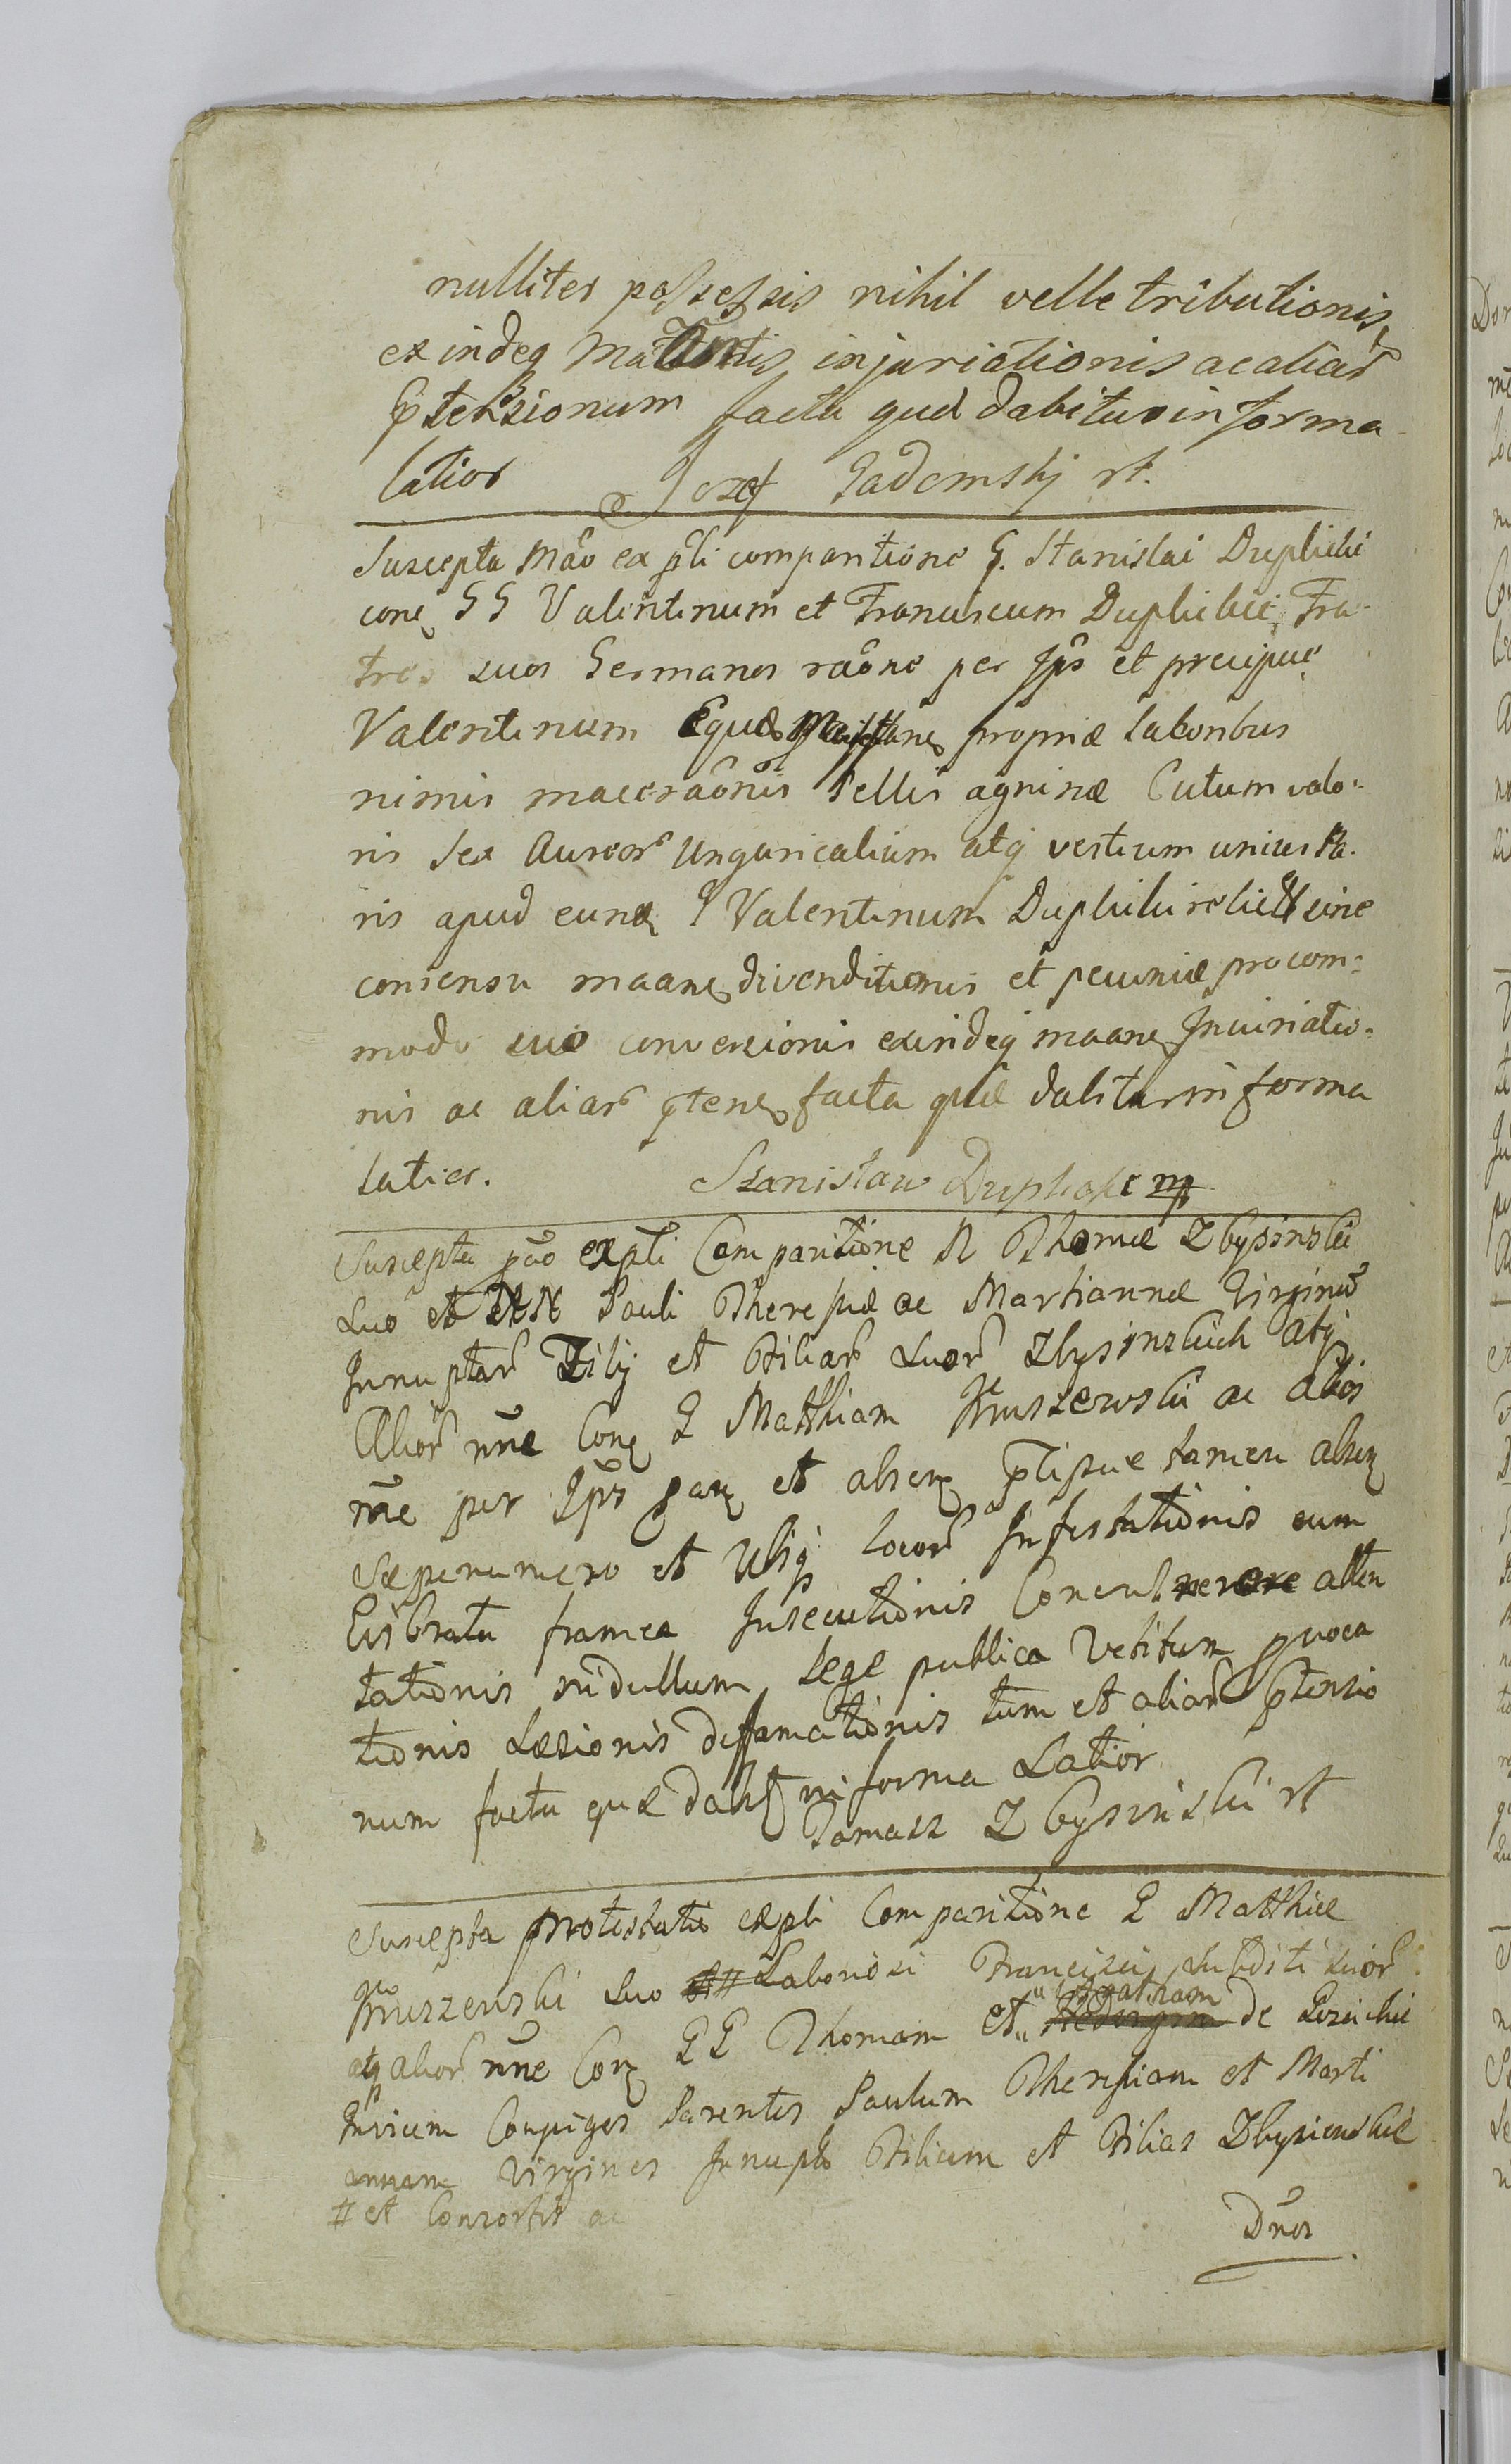 nulliter possessis nihil velle tributionis,
exindeq injuriationis ac aliar
ptensionum facta qud dabitur in forma
latior Jozef Gadomskj rt.
Suscepta Mão ex pli comparitione G. Stanislai Duplicki
conq G G Valentinum et Franciscum Duplickie Fra-
tres suos Germanos raõne per Ips et precipue
Valentinum Equæ propriæ laboribus
nimis maceraõnis Pellis agninæ Cutum valo:
ris sex Aureor Ungaricalium atq vestium unius Pa-
ris apud eunq G Valentinum Duplicki relict sine
consensu maanq divenditionis et pecuniæ pro com:
modo suo conversionis exindeq maanq Iniuriatio-
nis ac aliar ptenq facta quæ dabitur in forma
latior. Stanisław mp
Suscepta pão ex pli Comparitione N Thomæ Zbysinski
suo et NN Pauli Theresiæ ac Martiannæ Virginũ
Innuptar Filij et Filiar suor Zbysinskich atq
Alior nñe Conq G Matthiam Kruszewski ac alios
rñe per Ips panq et absenq plisque tamen absenq
Sæpenumero et Ubiq locor Infestationis eum
Evibrata framea Insecutionis atten
tationis in duellum Lege publica Vetitum pvoca
tionis Læsionis diffamationis tum et aliar ptensio
num facta quæ dabit in forma Latior
Tomasz Zbysinski rt
Suscepta protestatio ex pli Comparitione G Matthiæ
Kruszewski suo et # Laboriosi Francisci subditi suor
atq alior nñe Conq GG Thomam et de
Invicem Conjuges Parentes Paulum Theresiam et Marti
annam Virgines Innupts Filium et Filias Zbysienskie
# et Consortis ac
Dños